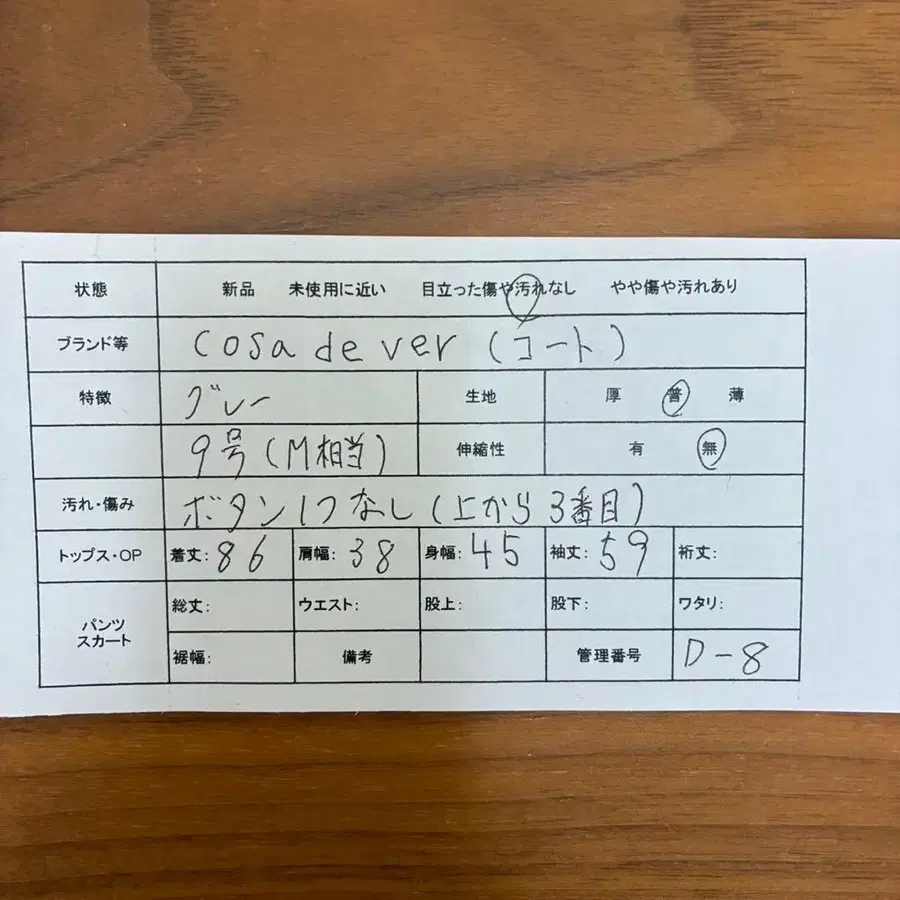 状態 新品 未使用に近い 目立った傷や汚れなし やや傷や汚れあり
ブランド等 cosa de ver (コート)
特徴 グレー 生地 厚 普 薄
9号(M相当) 伸縮性 有 無
汚れ・傷み ボタン1つなし(上から3番目)
トップス・OP 着丈:86 肩幅:38 身幅:45 袖丈:59 裄丈:
パンツ スカート 総丈: ウエスト: 股上: 股下: ワタリ:
裾幅: 備考 管理番号 D-8